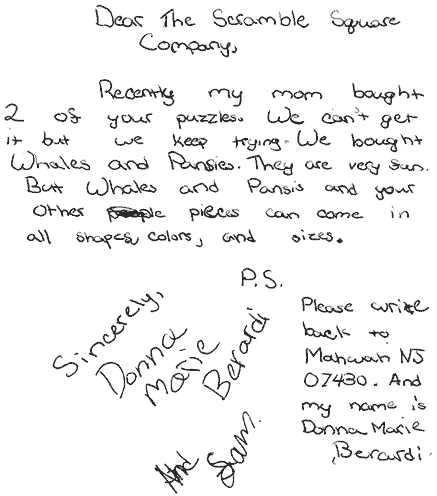 Dear The Scramble Square
Company,
Recently my mom bought
2 of your puzzles. We can't get
it but we keep trying. We bought
Whales and Pansies. They are very fun.
But Whales and Pansis and your
other pieces can come in
all shapes, colors, and sizes.
P.S.
Please write
back to
Mahwah NJ
07430. And
my name is
Donna Marie
Berardi.
Sincerely,
Donna
Marie
Berardi
And Sam